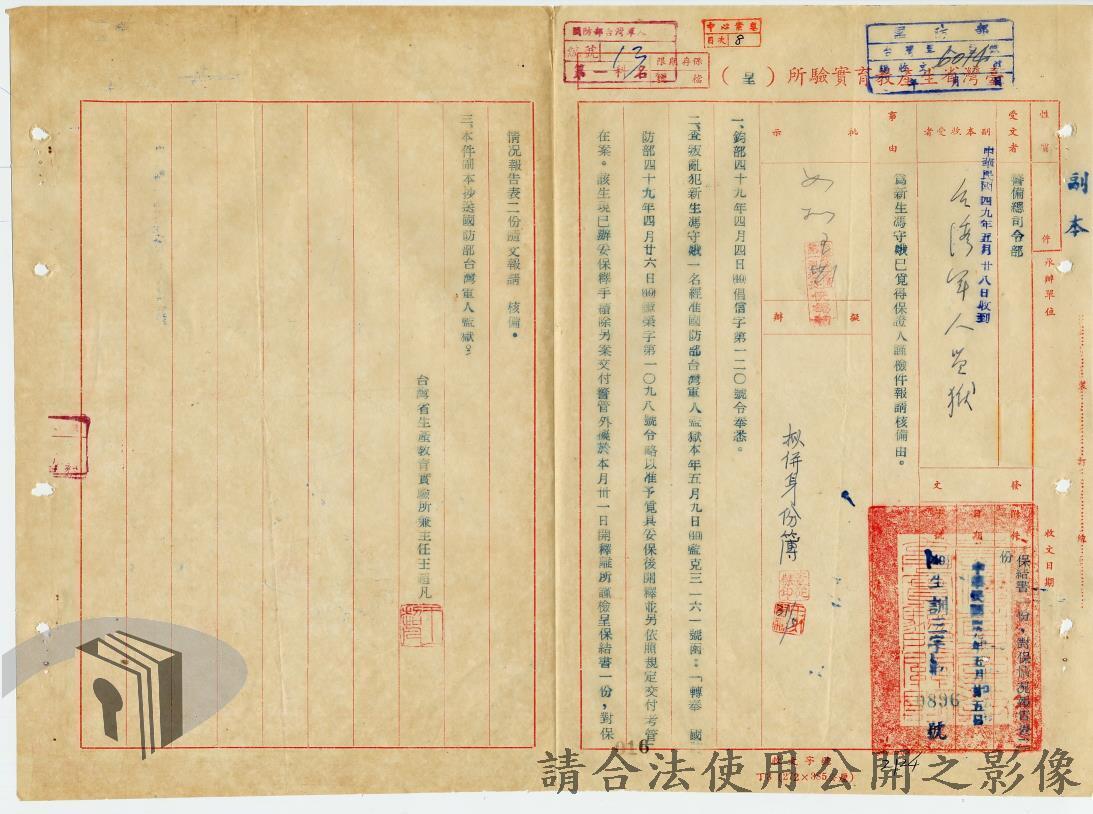 副本
國防部台灣軍人
編號 13
第一科
保存期限
檔號
中心業務
目次 8
6094
臺灣省生產教育實驗所（呈）
性質
件
承辦單位
收文日期
裝
訂
線
受文者
警備總司令部
副本收受者
台灣軍人監獄
中華民國四九年五月廿八日收到
發文
附件
保結書一份，對保情況報告表二份
日期
中華民國四十九年五月廿五日
字號
(49)生訓三字第
0896 號
事由
為新生馮守娥已覓得保證人謹檢件報請核備由。
批示
如擬
擬辦
擬併身份簿
一、鈞部四十九年四月四日(49)倡信字第一二〇號令奉悉。
二、查叛亂犯新生馮守娥一名經准國防部台灣軍人監獄本年五月九日(49)監克三一六一號函：「轉奉 國
防部四十九年四月廿六日(49)章榮字第一〇九八號令略以准予覓具妥保後開釋並另依照規定交付考管」
在案。該生現已辦妥保釋手續除另案交付警管外擬於本月卅一日開釋離所謹檢呈保結書一份，對保
情況報告表二份隨文報請 核備。
三、本件副本抄送國防部台灣軍人監獄。
台灣省生產教育實驗所兼主任王道凡
016
(272×385公厘)
2124
請合法使用公開之影像